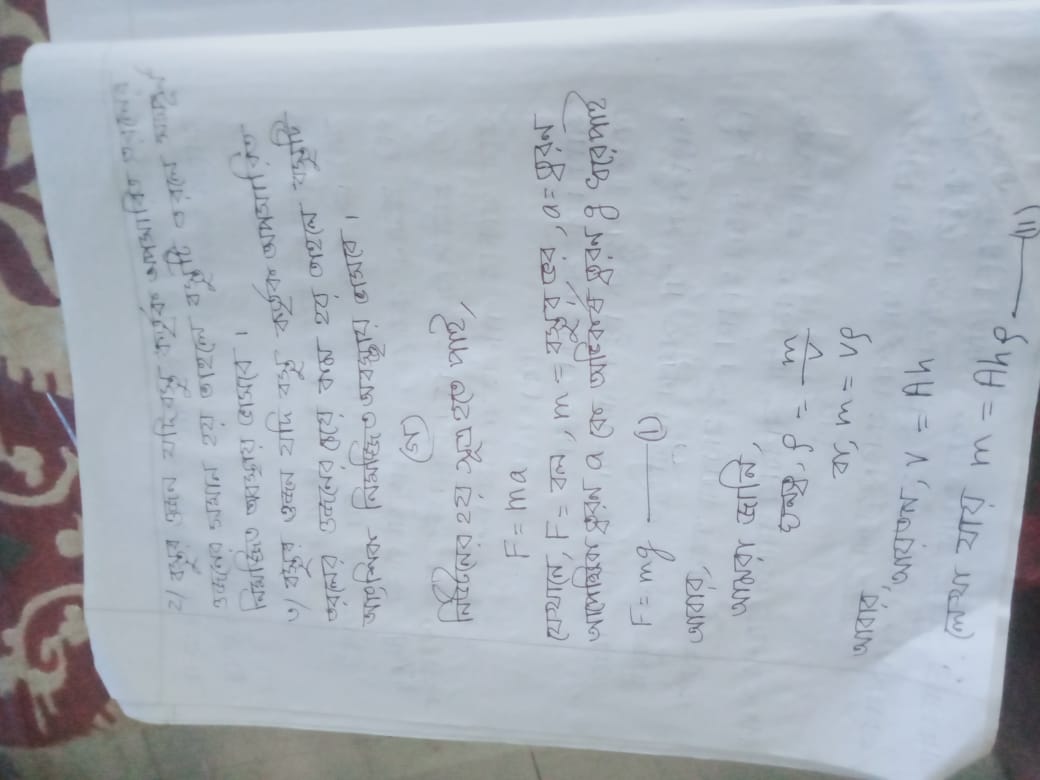 2/ বস্তুর ওজন বস্তু কর্তৃক অপসারিত তরলের
ওজনের সমান হয় তাহলে বস্তুটি তরলে সম্পূর্ণ
নিমজ্জিত অবস্থায় ভাসবে।
৩/ বস্তুর ওজন যদি বস্তু কর্তৃক অপসারিত
তরলের ওজনের চেয়ে কম হয় তাহলে বস্তুটি
আংশিক নিমজ্জিত অবস্থায় ভাসবে।
নিউটনের ২য় সূত্র হতে পাই,
F = ma
যেখানে, F = বল, m = বস্তুর ভর, a = ত্বরণ
ত্বরণ a কে অভিকর্ষজ ত্বরণ g
F = mg — (i)
আবার
আমরা জানি,
ঘনত্ব, ρ = m/v
বা, m = vρ
আবার, আয়তন, v = Ah
m = Ahρ — (ii)